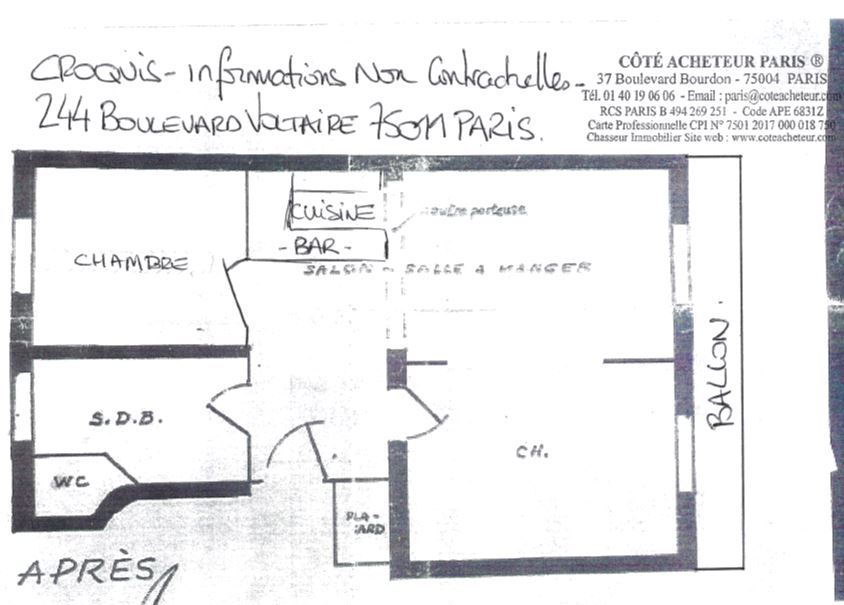 CROQUIS - Informations Non Contractuelles -
244 BOULEVARD VOLTAIRE 75011 PARIS.
CÔTÉ ACHETEUR PARIS ®
37 Boulevard Bourdon - 75004 PARIS
Tél. 01 40 19 06 06 - Email : paris@coteacheteur.com
RCS PARIS B 494 269 251 - Code APE 6831Z
Carte Professionnelle CPI N° 7501 2017 000 018 750
Chasseur Immobilier Site web : www.coteacheteur.com
CUISINE
poutre porteuse
- BAR -
CHAMBRE
SALON - SALLE A MANGER
BALCON
S.D.B.
CH.
WC
PLA-
CARD
APRÈS